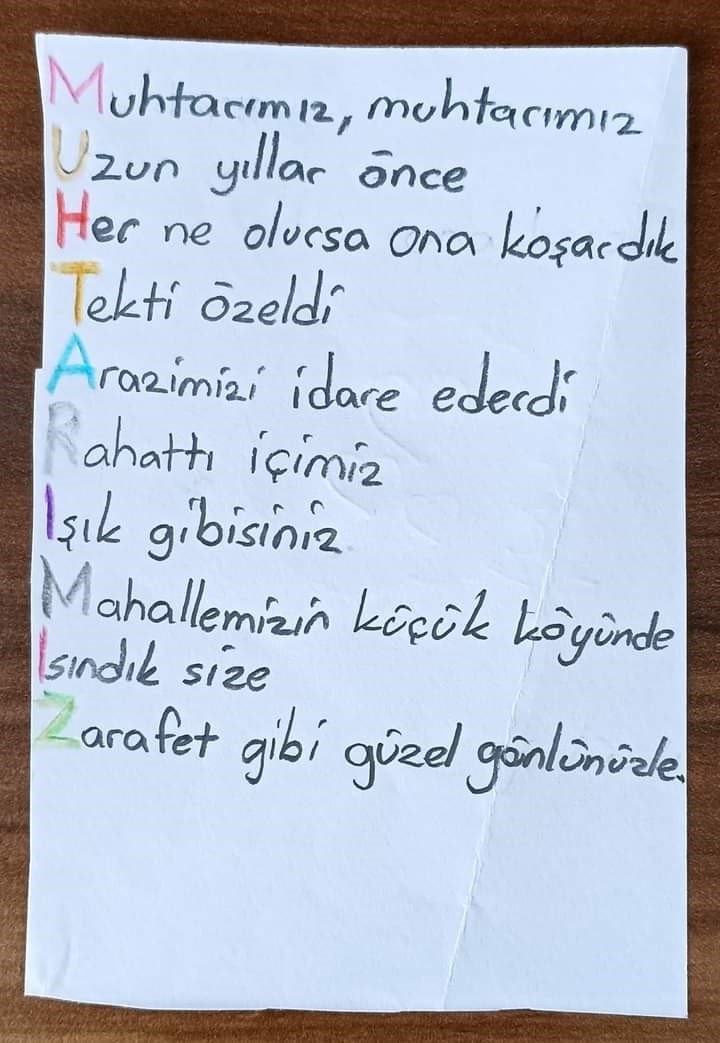 Muhtarımız, muhtarımız
Uzun yıllar önce
Her ne olursa ona koşardık
Tekti özeldi
Arazimizi idare ederdi
Rahattı içimiz
Işık gibisiniz
Mahallemizin küçük köyünde
Isındık size
Zarafet gibi güzel gönlünüzle.